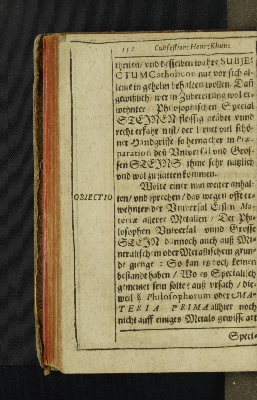 152 Confessium Henr: Khun:
theilen / und desselben wahre SUBJE-
CTUM Catholicon nur vor sich al-
leine in geheim behalten wollen. Dañ
gewißlich / wer in Zubereitung
Philosophischen Special
STEINEN fleissig geübet vnnd
recht erfahrn ist / der lernet viel schö-
ner Handgriffe so hernacher in Præ-
paration deß Vniversal vnd Gros-
sen STEINS ihme sehr nützlich
vnd wol zustatten kommen.
Wolte einer nun weiter anhal-
OBJECTIO
ten / vnd sprechen / das wegen offt er-
wehnter der Vniversal Ersten Ma-
toriæ allerer Metallen / Der Phi-
losophen Vniversal vnnd Grosse
STEIN dannoch auch auß Mi-
neralischem oder Metallischem grun-
de gienge : So kan es doch keinen
bestand haben / Wo es Specialisch
gemeinet sein solte : auß vrsach / die-
weil Philosophorum oder MA-
TERIA PRIMA allhier noch
nicht auff einiges Metals gewisse art
Speci-